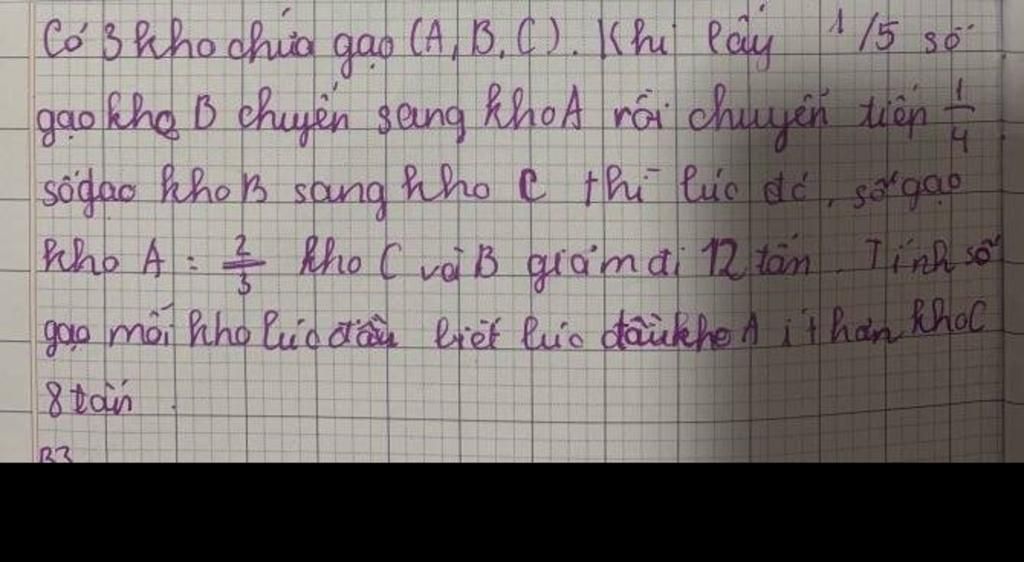 Có 3 kho chứa gạo (A, B, C). Khi lấy 1/5 số
gạo kho B chuyển sang kho A rồi chuyển tiếp 1/4
số gạo kho B sang kho C thì lúc đó, số gạo
kho A = 2/3 kho C và B giảm đi 12 tấn. Tính số
gạo mỗi kho lúc đầu biết lúc đầu kho A ít hơn kho C
8 tấn.
B3